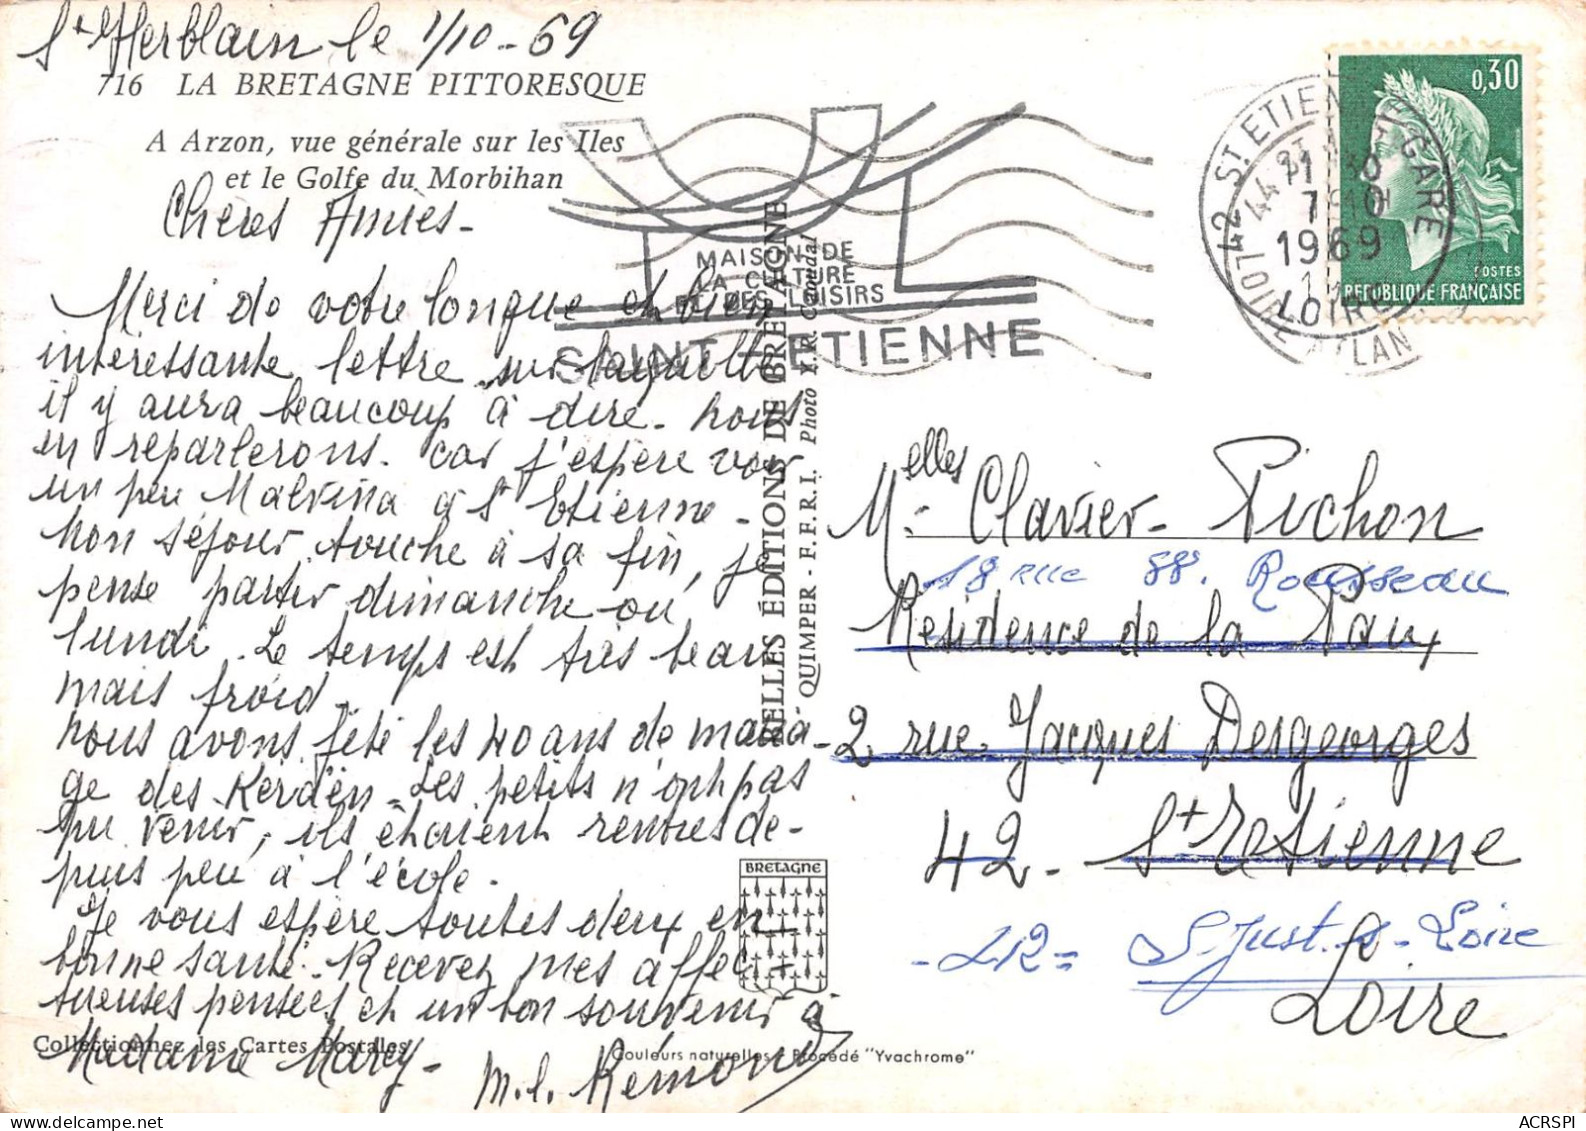 St Herblain le 1/10-69
716 LA BRETAGNE PITTORESQUE
A Arzon, vue générale sur les Iles
et le Golfe du Morbihan
Chères Amies-
Merci de votre longue et bien
intéressante lettre sur laquelle
il y aura beaucoup à dire. nous
en reparlerons. car j'espère voir
un peu Malvina à St Etienne-
Mon séjour touche à sa fin, je
pense partir dimanche ou
lundi. Le temps est très beau
mais froid.
Nous avons fêté les 40 ans de maria-
ge des Kerdén. Les petits n'ont pas
pu venir, ils étaient rentrés de-
puis peu à l'école.
Je vous espère toutes deux en
bonne santé. Recevez mes affec-
tueuses pensées et un bon souvenir à
Madame Marcy-
M.L. Rémond
Collectionnez les Cartes Postales
Couleurs naturelles - Procédé "Yvachrome"
BELLES ÉDITIONS DE BRETAGNE
QUIMPER - F.F.R.I. Photo J.R. Caoudal
BRETAGNE
MAISON DE
LA CULTURE
ET DES LOISIRS
SAINT-ETIENNE
42 ST ETIENNE GARE
11 30
7-10
1969
LOIRE
LOIRE ATLAN
0,30
POSTES
REPUBLIQUE FRANÇAISE
Melles Clavier-Pichon
18 rue 88. Rousseau
Résidence de la Paix
2 rue Jacques Desgeorges
42- St Etienne
-42= St Just. s- Loire
Loire
ACRSPI